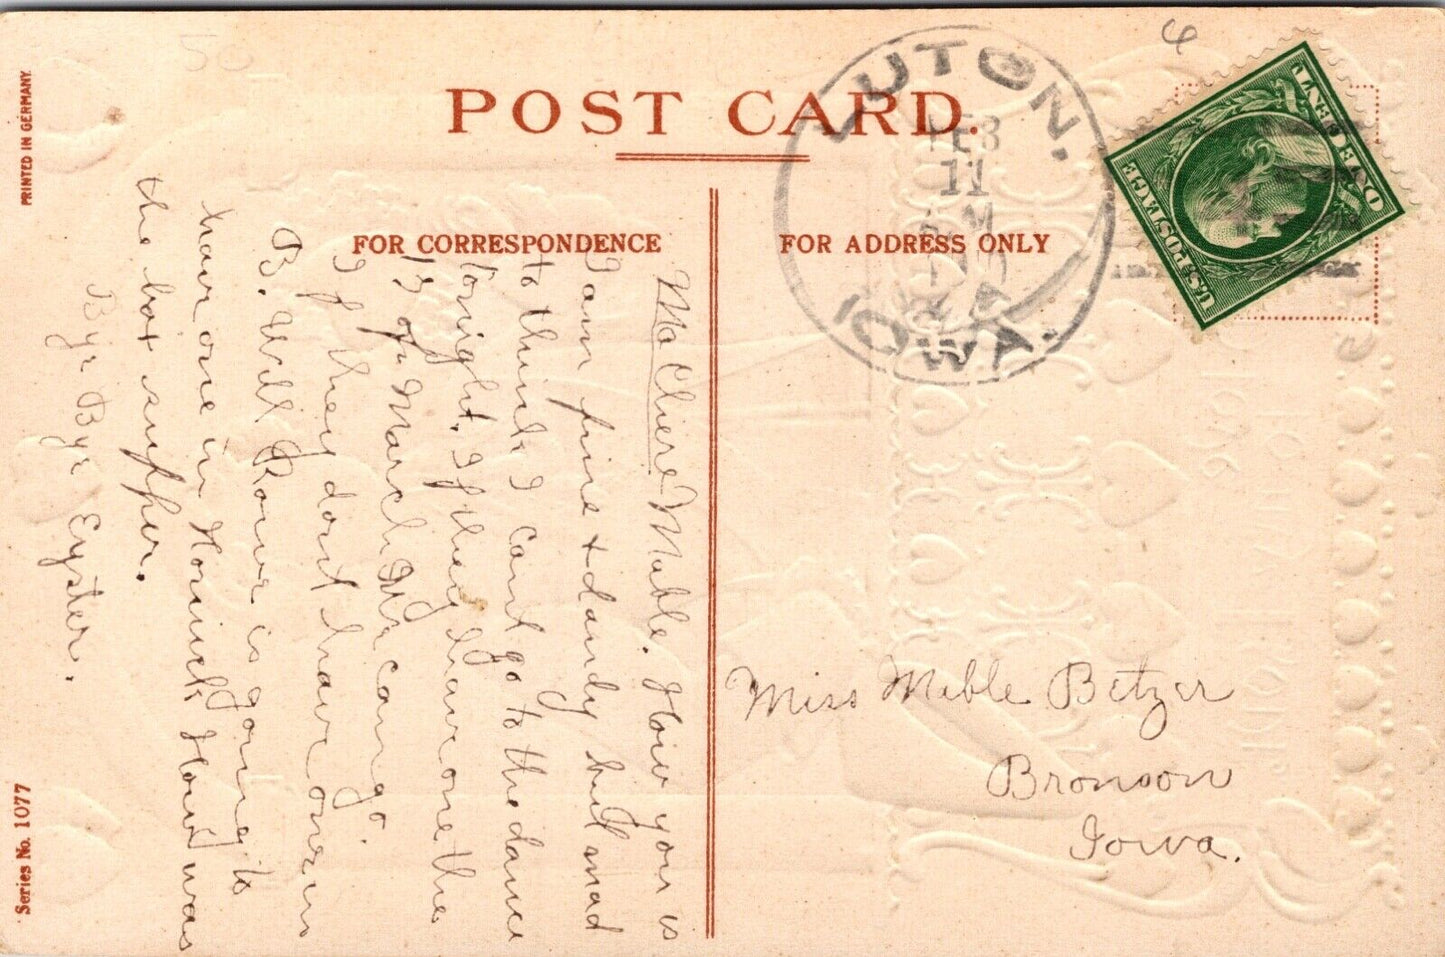 PRINTED IN GERMANY.
Series No. 1077
POST CARD.
FOR CORRESPONDENCE
FOR ADDRESS ONLY
LUTON,
FEB
11
M
IOWA.
U.S. POSTAGE
ONE CENT
Ma Chere Mable. How you is
I am fine + dandy but mad
to think I cant go to the dance
tonight. If they have one the
13 of March Me can go.
If they dont have one in
B. Will Rowe is going to
have one in Hornick How was
the box supper.
Bye Bye Eyster.
Miss Mable Betzer
Bronson
Iowa.